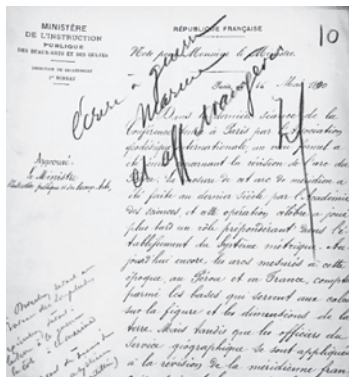 MINISTÈRE
DE L'INSTRUCTION
PUBLIQUE
DES BEAUX-ARTS ET DES CULTES
1er BUREAU
RÉPUBLIQUE FRANÇAISE
10
Note pour Monsieur le Ministre.
Paris, 16 Mai 1900
écrire à guerre
Marine
et aff étrangères
Approuvé:
le Ministre
Dans la dernière séance de la
Conférence à Paris par l'association
géodésique internationale, un vœu formel a
été concernant la révision de l'arc du
La mesure de cet arc de méridien a
été faite au dernier siècle par l'Académie
des sciences, et cette opération célèbre a joué
plus tard un rôle prépondérant dans l'é-
tablissement du système métrique. Au-
jourd'hui encore, les arcs mesurés à cette
époque, au Pérou et en France, comptent
parmi les bases qui servent aux calculs
sur la figure et les dimensions de la
terre. Mais tandis que les officiers du
Service géographique se sont appliqués
à la révision de la méridienne fran-